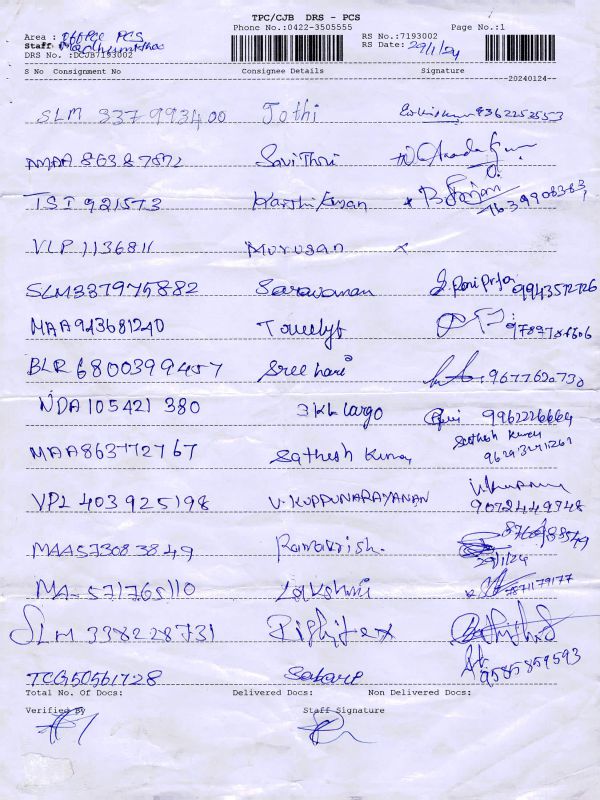 TPC/CJB DRS - PCS
Phone No.:0422-3505555 Page No.:1
Area : office PCS RS No.:7193002
Staff: Madhumitha RS Date: 29/1/24
DRS No. :DCJB7193002
S No Consignment No Consignee Details Signature
20240124
SLM 337993400 Jothi 9362252553
MAA 86387572 Savithri
TSI 921573 Karthikeyan 7639908383
VLP 1136811 Murugan x
SLM337975882 Saravanan 9943572726
MAA943681240
BLR 6800399457 Sree hari 9677620730
NDA 105421 380 3KL Largo 9962226664
MAA863772767 Sathesh Kumar Sathesh Kumar
VPL 403925198 V.KUPPUNARAYANAN
9072449748
MAA573083849 Ramakrish.
29/1/24
MA- 571765110 Lakshmi 7871179177
SLM 338228731
TCG50561728 9585859593
Total No. Of Docs: Delivered Docs: Non Delivered Docs:
Verified By Staff Signature